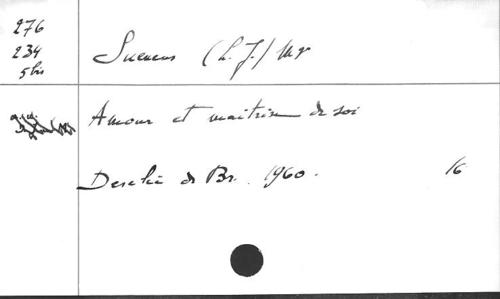 276
234
5bis
Suenens (L. J.) Mgr
Amour et maîtrise de soi
Desclée de Br. 1960.
16